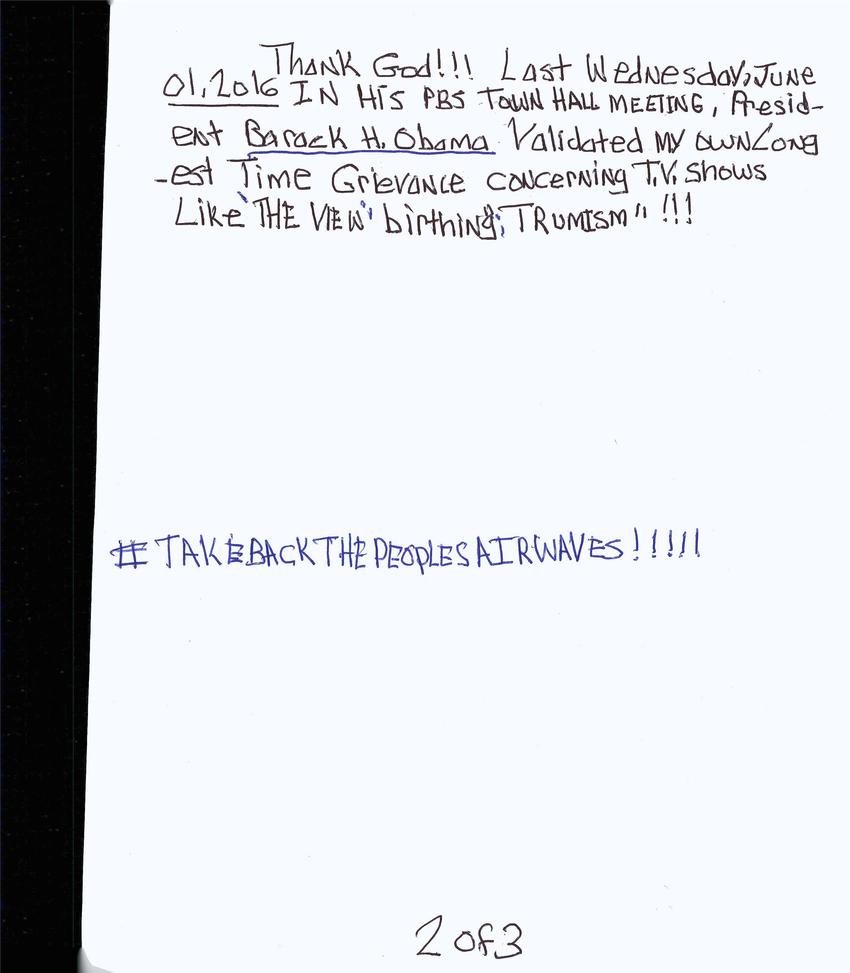 Thank God!!! Last Wednesday, June
01, 2016 IN His PBS TOWN HALL MEETING, Presid-
ent Barack H. Obama Validated MY OWN Long
-est Time Grievance concerning T.V. Shows
Like 'THE VIEW' birthing; TRUMISM" !!!
#TAKEBACKTHEPEOPLESAIRWAVES!!!!!
2 of 3